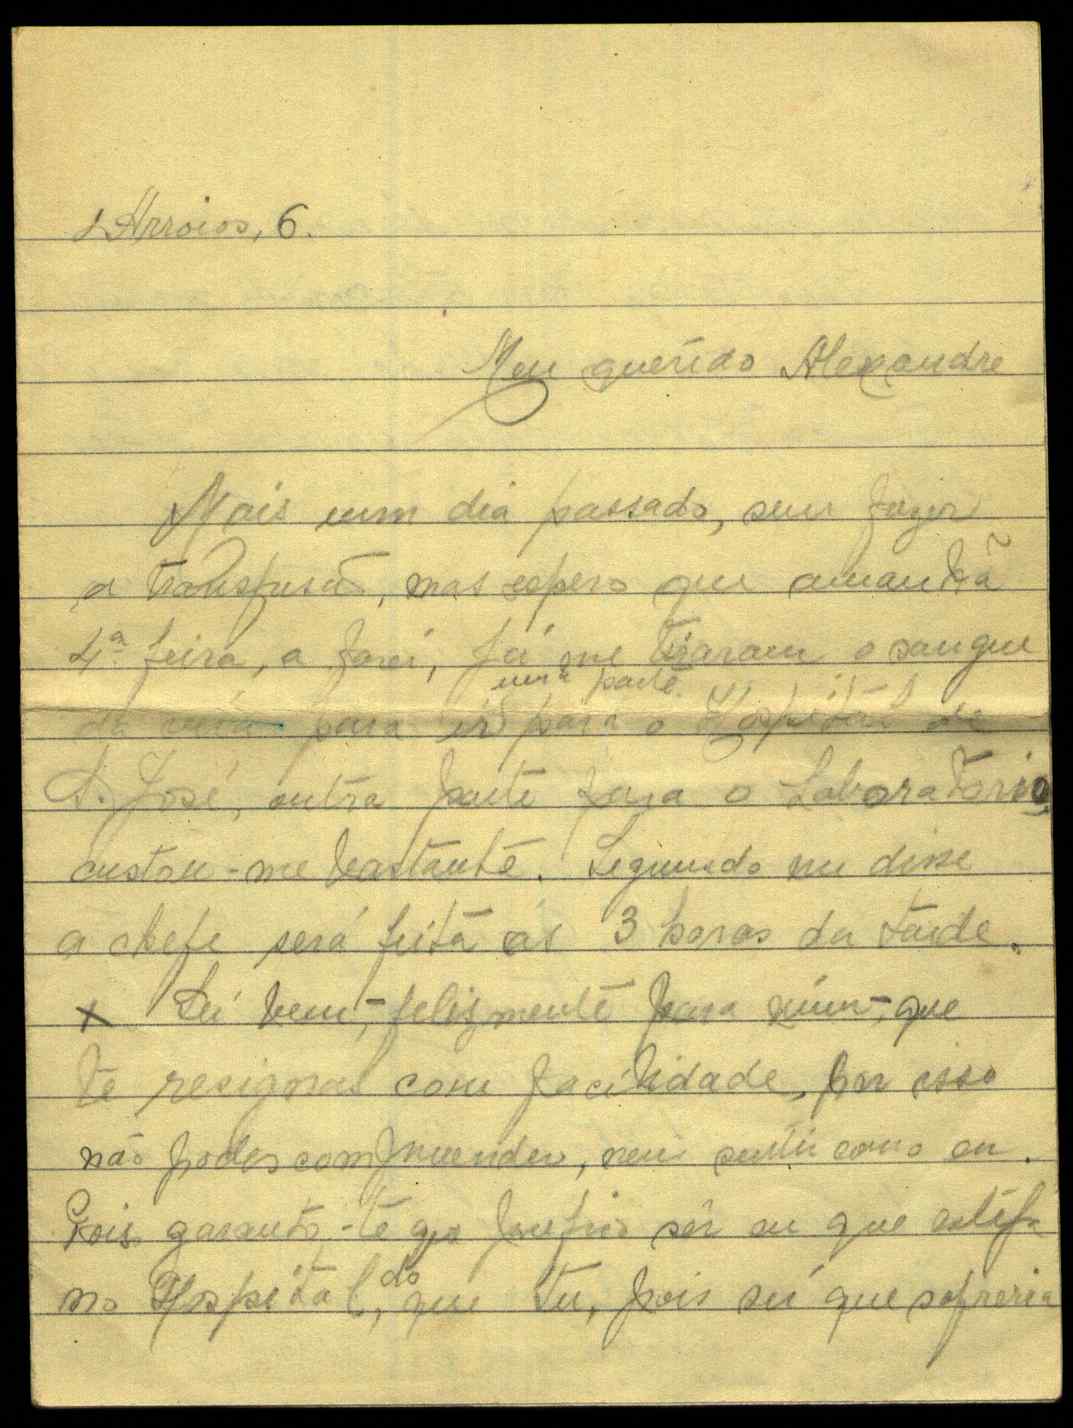 Arroios, 6.
Meu querido Alexandre
Mais um dia passado, sem fazer
a transfusão, mas espero que amanhã
4ª feira, a farei, já me tiraram o sangue
uma parte
da veia para ir para o Hospital de
S. José, outra parte para o Laboratorio
custou-me bastante. Segundo me disse
a chefe será feita ás 3 horas da tarde.
x Sei bem, - felizmente para mim -, que
te resignas com facilidade, por isso
não podes compreender, nem sentir como eu.
Pois garanto-te que prefiro ser eu que esteja
do
no Hospital, que tu, pois sei que sofreria